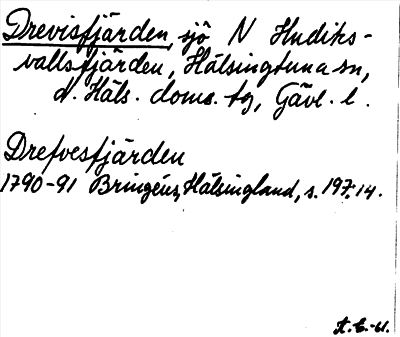 Drevisfjärden, sjö N Hudiks-
vallsfjärden, Hälsingtuna sn,
d. Häls. doms. tg, Gävl. l.
Drefvesfjärden
1790-91 Bringéus, Hälsingland, s. 197:14.